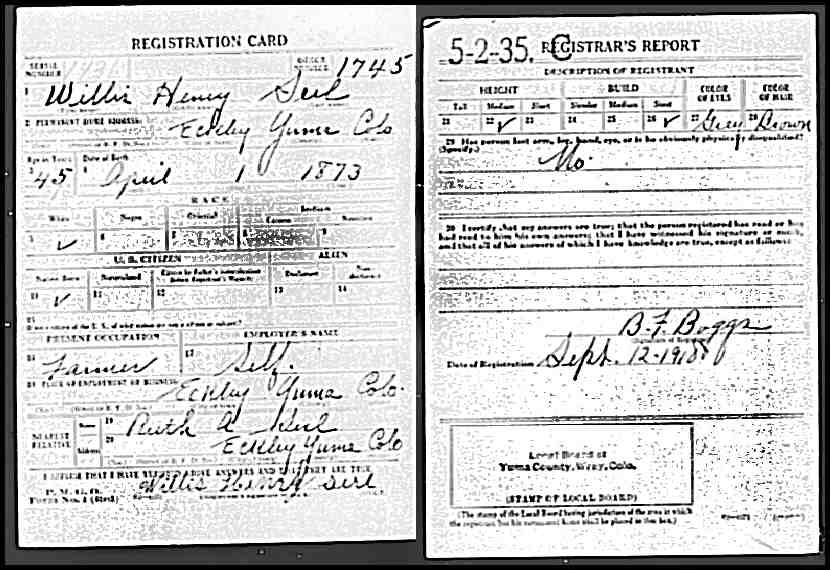 REGISTRATION CARD
SERIAL NUMBER
ORDER NUMBER 1745
1 Willis Henry Serl
2 PERMANENT HOME ADDRESS:
Eckley Yuma Colo
Age in Years Date of Birth
45 April 1 1873
RACE
White Negro Oriental Indian
Citizen Noncitizen
5 ✓ 6 7 8 9
U. S. CITIZEN ALIEN
Native Born Naturalized Citizen by Father's Naturalization Before Registrant's Majority Declarant Non-declarant
10 ✓ 11 12 13 14
15
If not a citizen of the U. S., of what nation are you a citizen or subject?
PRESENT OCCUPATION EMPLOYER'S NAME
16 Farmer 17 Self.
18 PLACE OF EMPLOYMENT OR BUSINESS:
Eckley Yuma Colo.
NEAREST RELATIVE
Name 19 Ruth A Serl
Address 20 Eckley Yuma Colo
I AFFIRM THAT I HAVE VERIFIED ABOVE ANSWERS AND THAT THEY ARE TRUE
P. M. G. O.
Form No. 1 (Red)
Willis Henry Serl
5-2-35. C REGISTRAR'S REPORT
DESCRIPTION OF REGISTRANT
HEIGHT BUILD COLOR OF EYES COLOR OF HAIR
Tall Medium Short Slender Medium Stout
21 22 ✓ 23 24 25 26 ✓ 27 Grey 28 Brown
29 Has person lost arm, leg, hand, eye, or is he obviously physically disqualified?
(Specify.)
No.
30 I certify that my answers are true; that the person registered has read or has
had read to him his own answers; that I have witnessed his signature or mark,
and that all of his answers of which I have knowledge are true, except as follows:
B. F. Boggs
(Signature of Registrar)
Date of Registration Sept. 12-1918
Local Board of
Yuma County, Wray, Colo.
(STAMP OF LOCAL BOARD)
(The stamp of the Local Board having jurisdiction of the area in which
the registrant has his permanent home shall be placed in this box.)